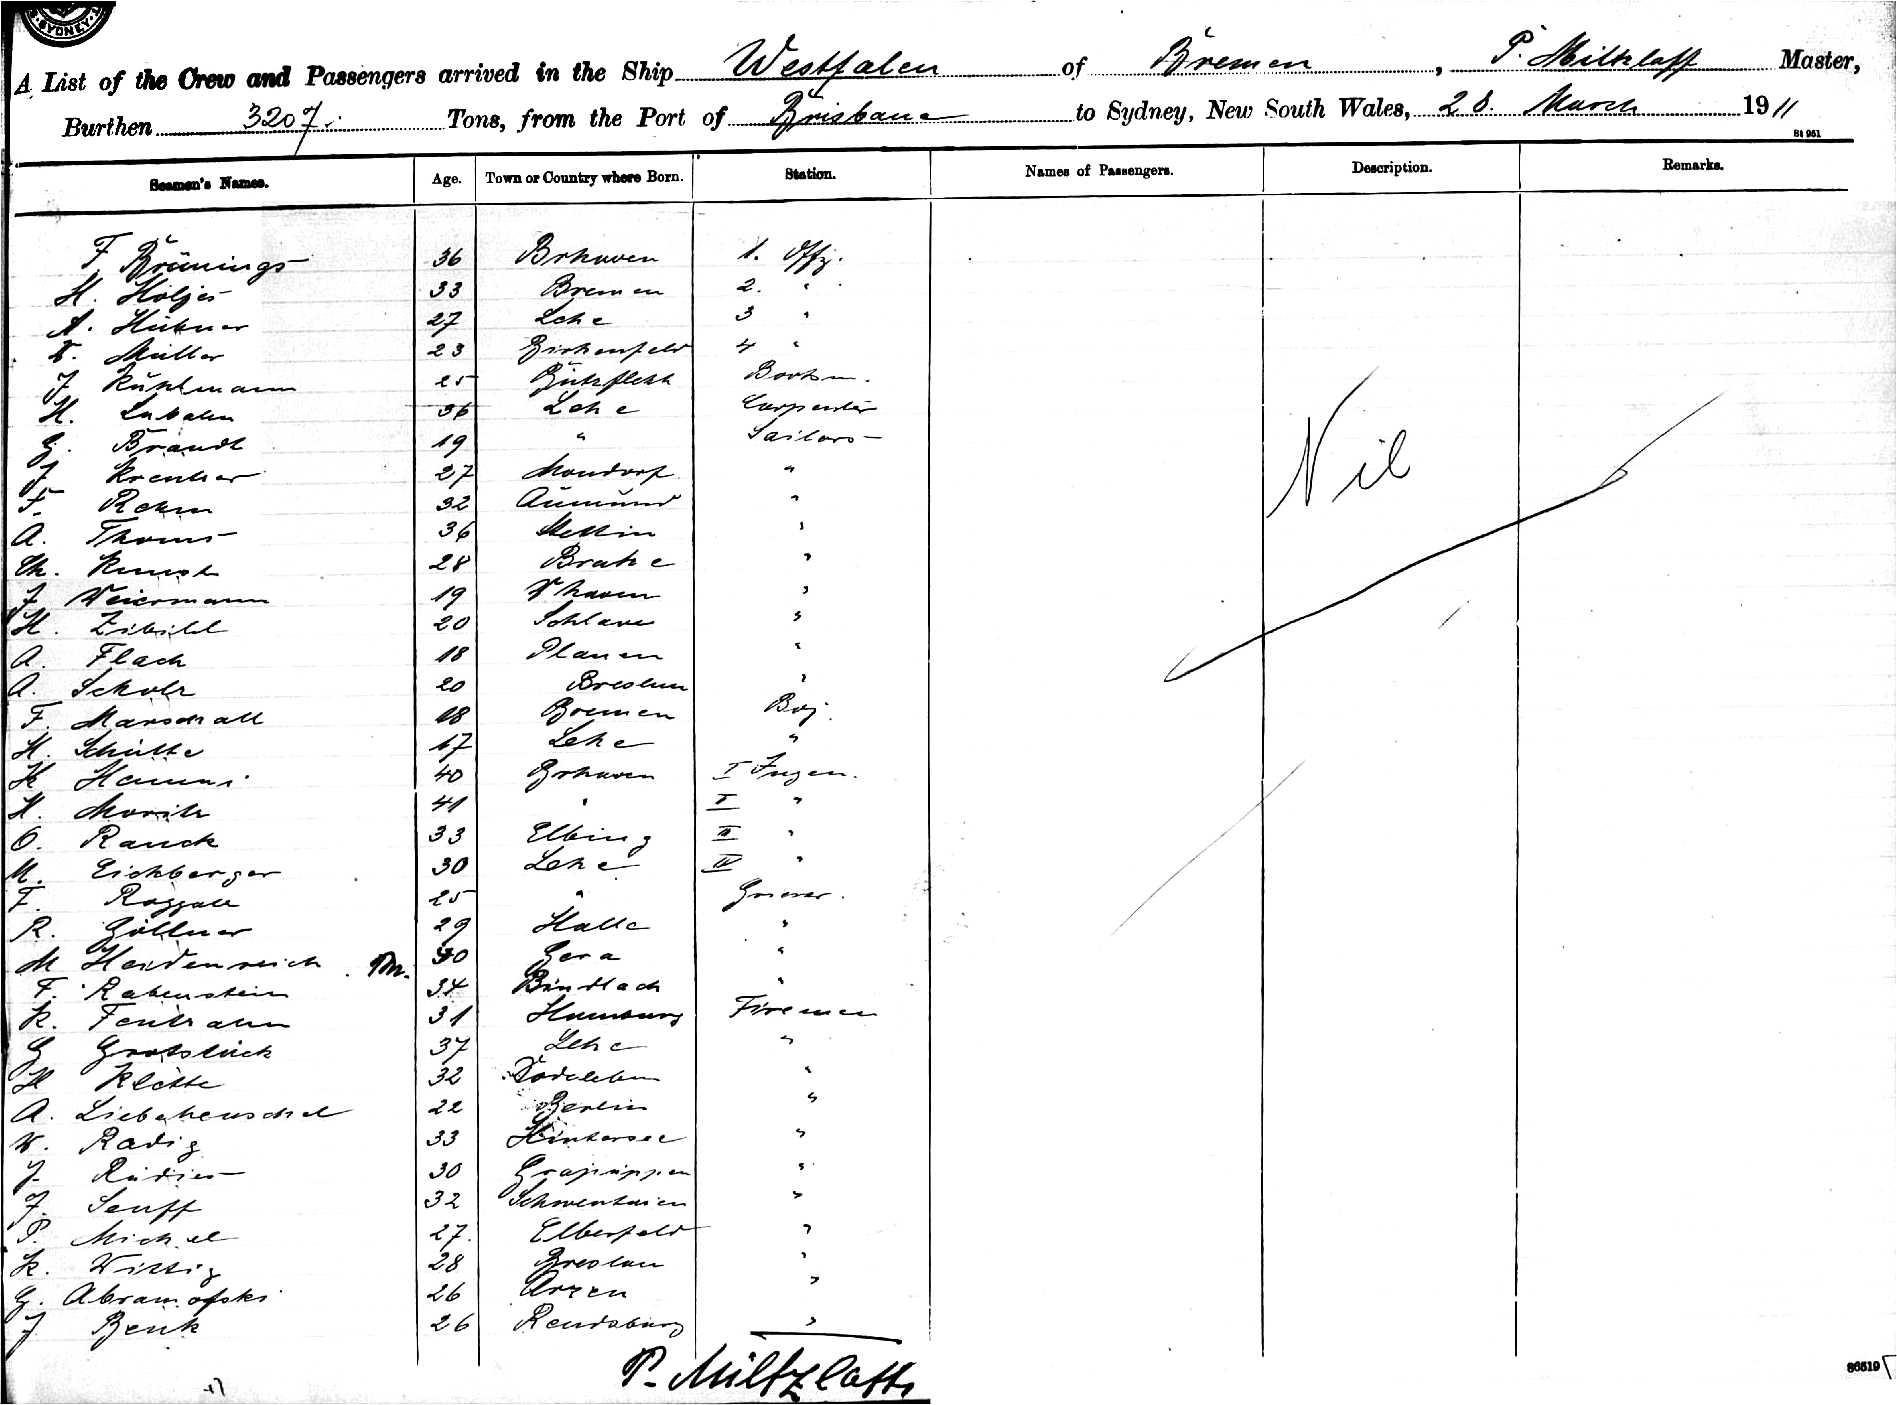 SYDNEY
A List of the Crew and Passengers arrived in the Ship Westfalen of Bremen, P. Miltzlaff Master,
Burthen 3207 Tons, from the Port of Brisbane to Sydney, New South Wales, 28. March 1911
St 951
Seamen's Names. Age. Town or Country where Born. Station. Names of Passengers. Description. Remarks.
F Brünings 36 Brhaven 1. Offz.
H. Höljes 33 Bremen 2. "
A. Hübner 27 Lehe 3 "
W. Müller 23 Birkenfeld 4 "
J Kühlmann 25 Bützfleth Bootsm.
H. 36 Lehe Carpenter
G. Brandt 19 " Sailors
J 27 Mondorf "
F. Rehm 32 Aumund "
A. Thoms 36 Stettin "
Th. 28 Brake "
J Weiermann 19 W'haven "
H. 20 Schlawe "
A. Flach 18 Plauen "
A. Scholz 20 Breslau "
F. Marschall 18 Bremen Boy.
H. Schütte 17 Lehe "
K 40 Brhaven I Ingen.
H. Moritz 41 " II "
O. Rauch 33 Elbing III "
M. Eichberger 30 Lehe IV "
F. 25 "
R. Göllner 29 Halle "
M Heidenreich 30 Gera "
F. Rabenstein 34 Bindlach "
K. 31 Hamburg Firemen
G 37 Lehe "
H Klette 32 "
A. Liebehenschel 22 Berlin "
W. Radig 33 Hintersee "
J. 30 "
J. Senff 32 Schwentaien "
P. Michel 27. Elberfeld "
K. Wittig 28 Breslau "
G. Abramofski 26 Arzen "
J Benk 26 Rendsburg "
Nil
P. Miltzlaff
86519